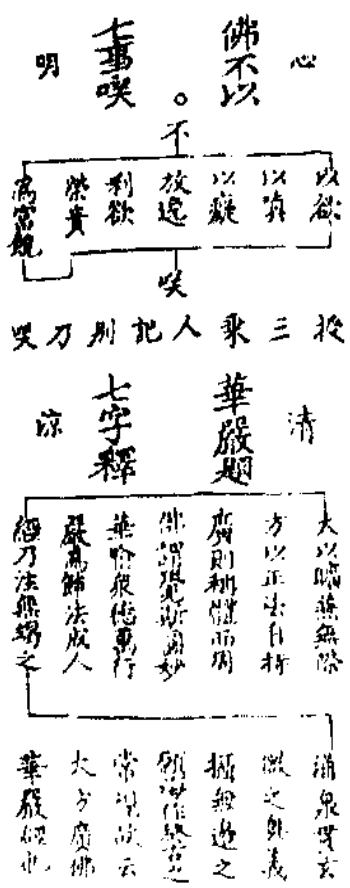 心
佛不以
七事咲
明
不
以欲
以嗔
以癡
放逸
利欲
榮貴
為富饒
咲
授三乘人記別方咲
清
華嚴題
七字釋
涼
大以曠兼無際
方以正法自持
廣則稱體而周
佛謂覺斯玄妙
華喻衆德萬行
嚴為飾法成人
經乃注無竭之
涌泉貫玄
微之奧義
攝無邊之
海會作終古之
常規故云
大方廣佛
華嚴經也